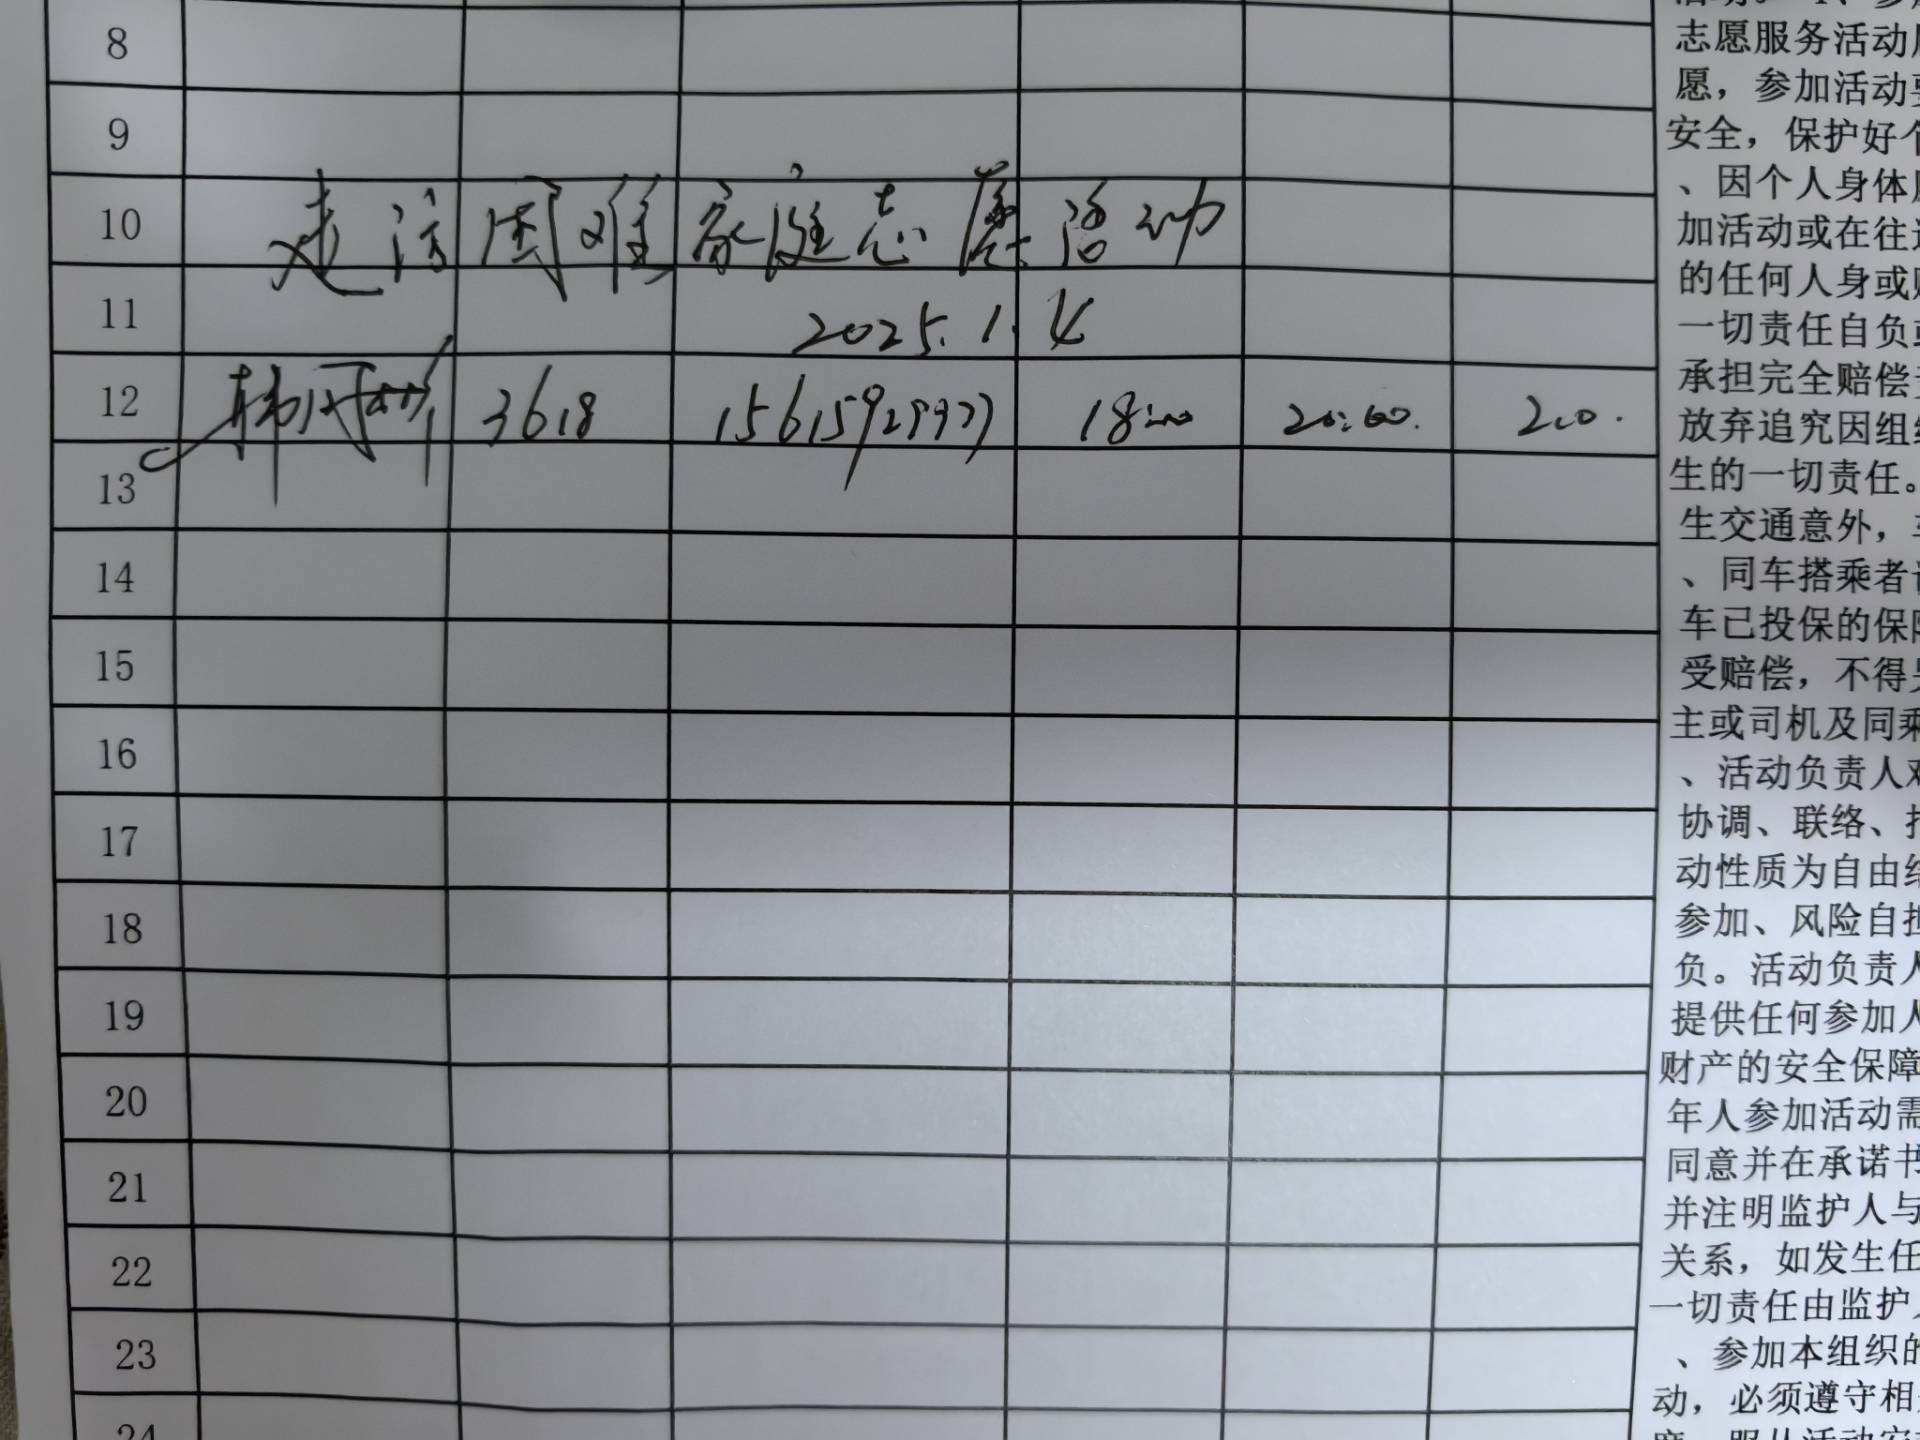 8
9
10 走访困难家庭志愿活动
11 2025.1.4
12 3618 18:00 20:00. 2.0.
13
14
15
16
17
18
19
20
21
22
23
24
志愿服务活动
愿，参加活动要
安全，保护好个
、因个人身体
加活动或在往返
的任何人身或财
一切责任自负或
承担完全赔偿责
放弃追究因组织
生的一切责任。
生交通意外，车
、同车搭乘者
车已投保的保险
受赔偿，不得另
主或司机及同乘
、活动负责人对
协调、联络、打
动性质为自由结
参加、风险自担
负。活动负责人
提供任何参加人
财产的安全保障
年人参加活动需
同意并在承诺书
并注明监护人与
关系，如发生任
一切责任由监护人
、参加本组织的
动，必须遵守相关